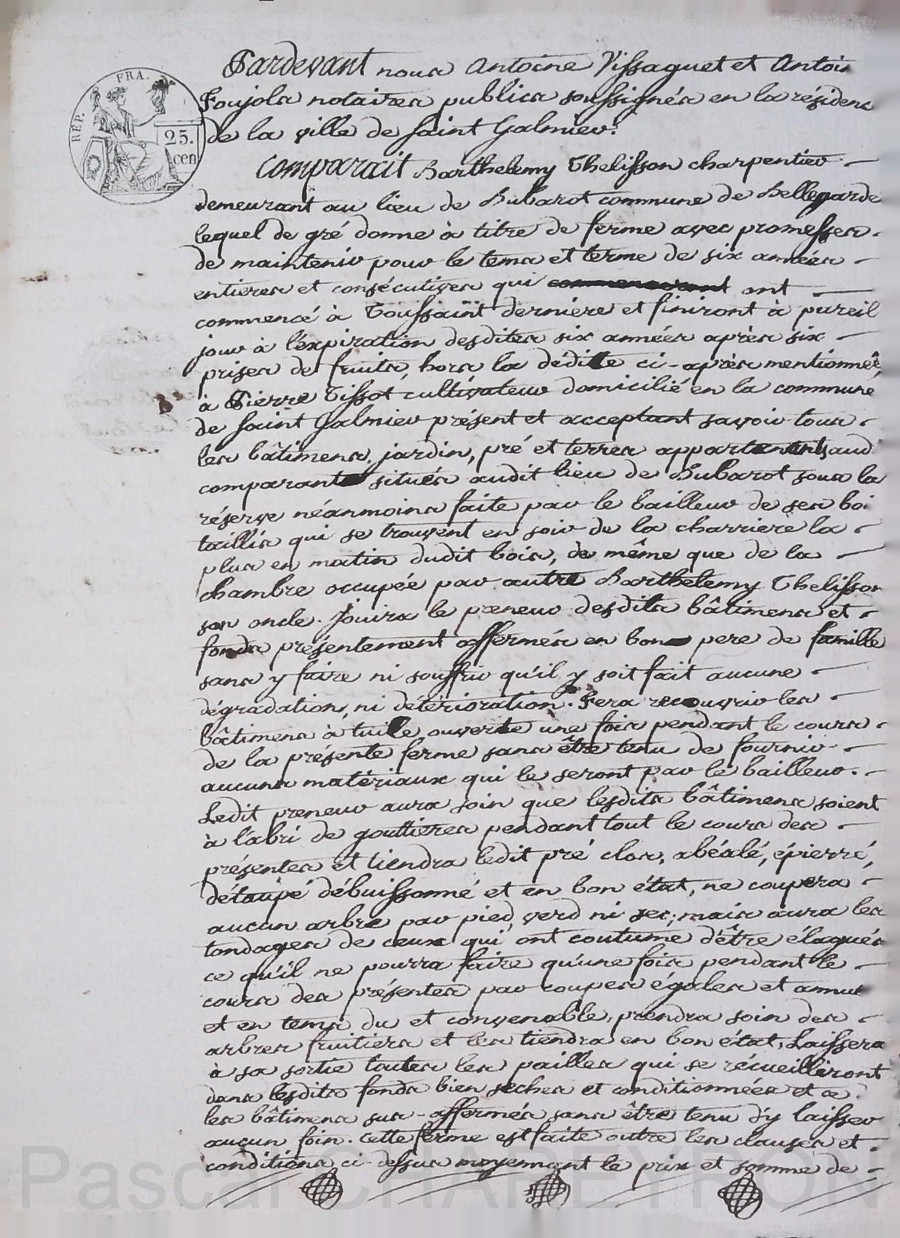 RÉP. FRA.
25.
cen
Pardevant nous Antoine Vissaguet et Antoi
Poujols notaires publics soussignés en la résidenc
de la ville de Saint Galmier.
Comparait Barthelemy Thelisson charpentier
demeurant au lieu de Bubarot commune de Bellegarde
lequel de gré donne à titre de ferme avec promesses
de maintenir pour le tems et terme de six années
entieres et consécutives qui commencerent ont
commencé à Toussaint derniere et finiront à pareil
jour à l'expiration desdites six années après six
prises de fruits, hors la dédite ci-après mentionnée,
à Pierre Tissot cultivateur domicilié en la commune
de Saint Galmier présent et acceptant savoir tous
les bâtimens, jardin, pré et terres appartenants aud
comparant situés audit lieu de Bubarot sous la
réserve néanmoins faite par le bailleur de ses boi
taillis qui se trouvent en soir de la charriere la
plus en matin dudit bois, de même que de la
chambre occupée par autre Barthelemy Thelisson
son oncle. Jouira le preneur desdits bâtimens et
fonds présentement affermés en bon pere de famille
sans y faire ni souffrir qu'il y soit fait aucune
dégradation, ni détérioration. Fera recouvrir les
bâtimens à tuile ouverte une fois pendant le cours
de la présente ferme sans être tenu de fournir
aucuns matériaux qui le seront par le bailleur.
Ledit preneur aura soin que lesdits bâtimens soient
à l'abri de gouttieres pendant tout le cours des
présentes et tiendra ledit pré clos, abéalé, épierré,
détaupé débuissonné et en bon état, ne coupera
aucun arbre par pied, verd ni sec; mais aura les
tondages de ceux qui ont coutume d'être élagués
ce qu'il ne pourra faire qu'une fois pendant le
cours des présentes par coupes égales et annue
et en tems du et convenable, prendra soin des
arbres fruitiers et les tiendra en bon état, Laissera
à sa sortie toutes les pailles qui se récueilleront
dans lesdits fonds bien seches et conditionnées et
les bâtimens sus-affermés sans être tenu d'y laisser
aucun foin. Cette ferme est faite outre les clauses et
conditions ci-dessus moyennant le prix et somme de
Pascal CHAREYRON